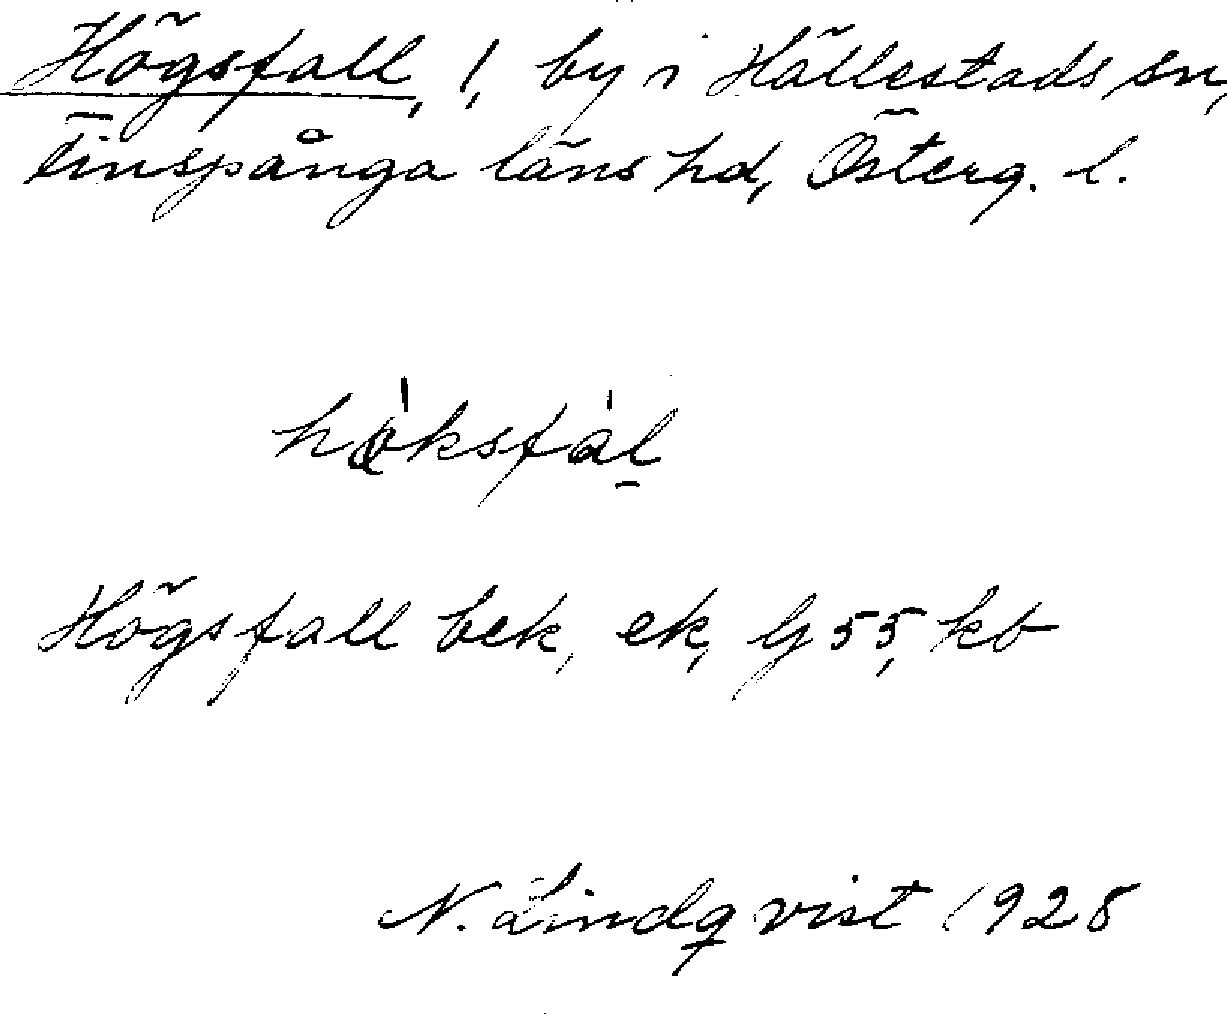 Högsfall, 1, by i Hällestads sn,
Finspånga läns hd, Österg. l.
Högsfall bek, ek, G 55, kb
N. Lindqvist 1928